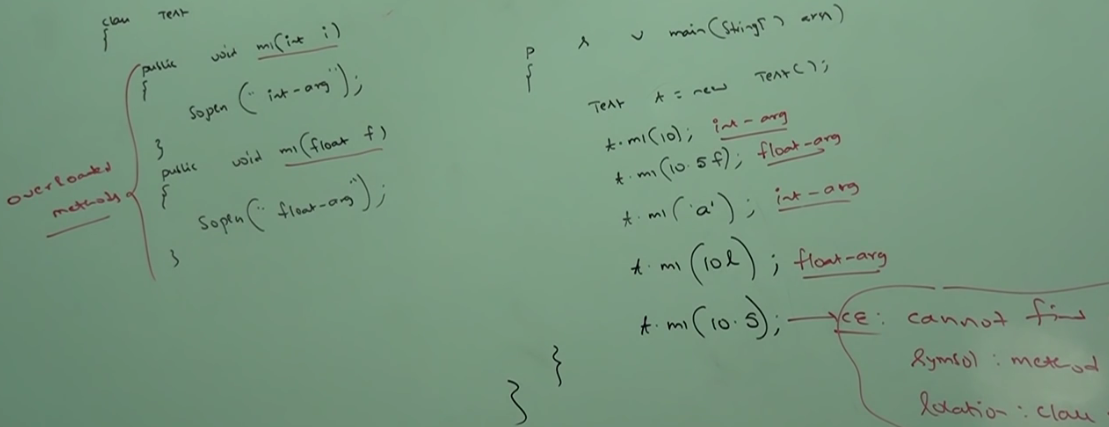 class Test
{
public void m1(int i)
{
Sopln("int-arg");
}
public void m1(float f)
{
Sopln("float-arg");
}
overloaded
methods
p s v main(String[] args)
{
Test t = new Test();
t.m1(10); int-arg
t.m1(10.5f); float-arg
t.m1('a'); int-arg
t.m1(10l); float-arg
t.m1(10.5); CE: cannot find
symbol: method
location: class
}
}